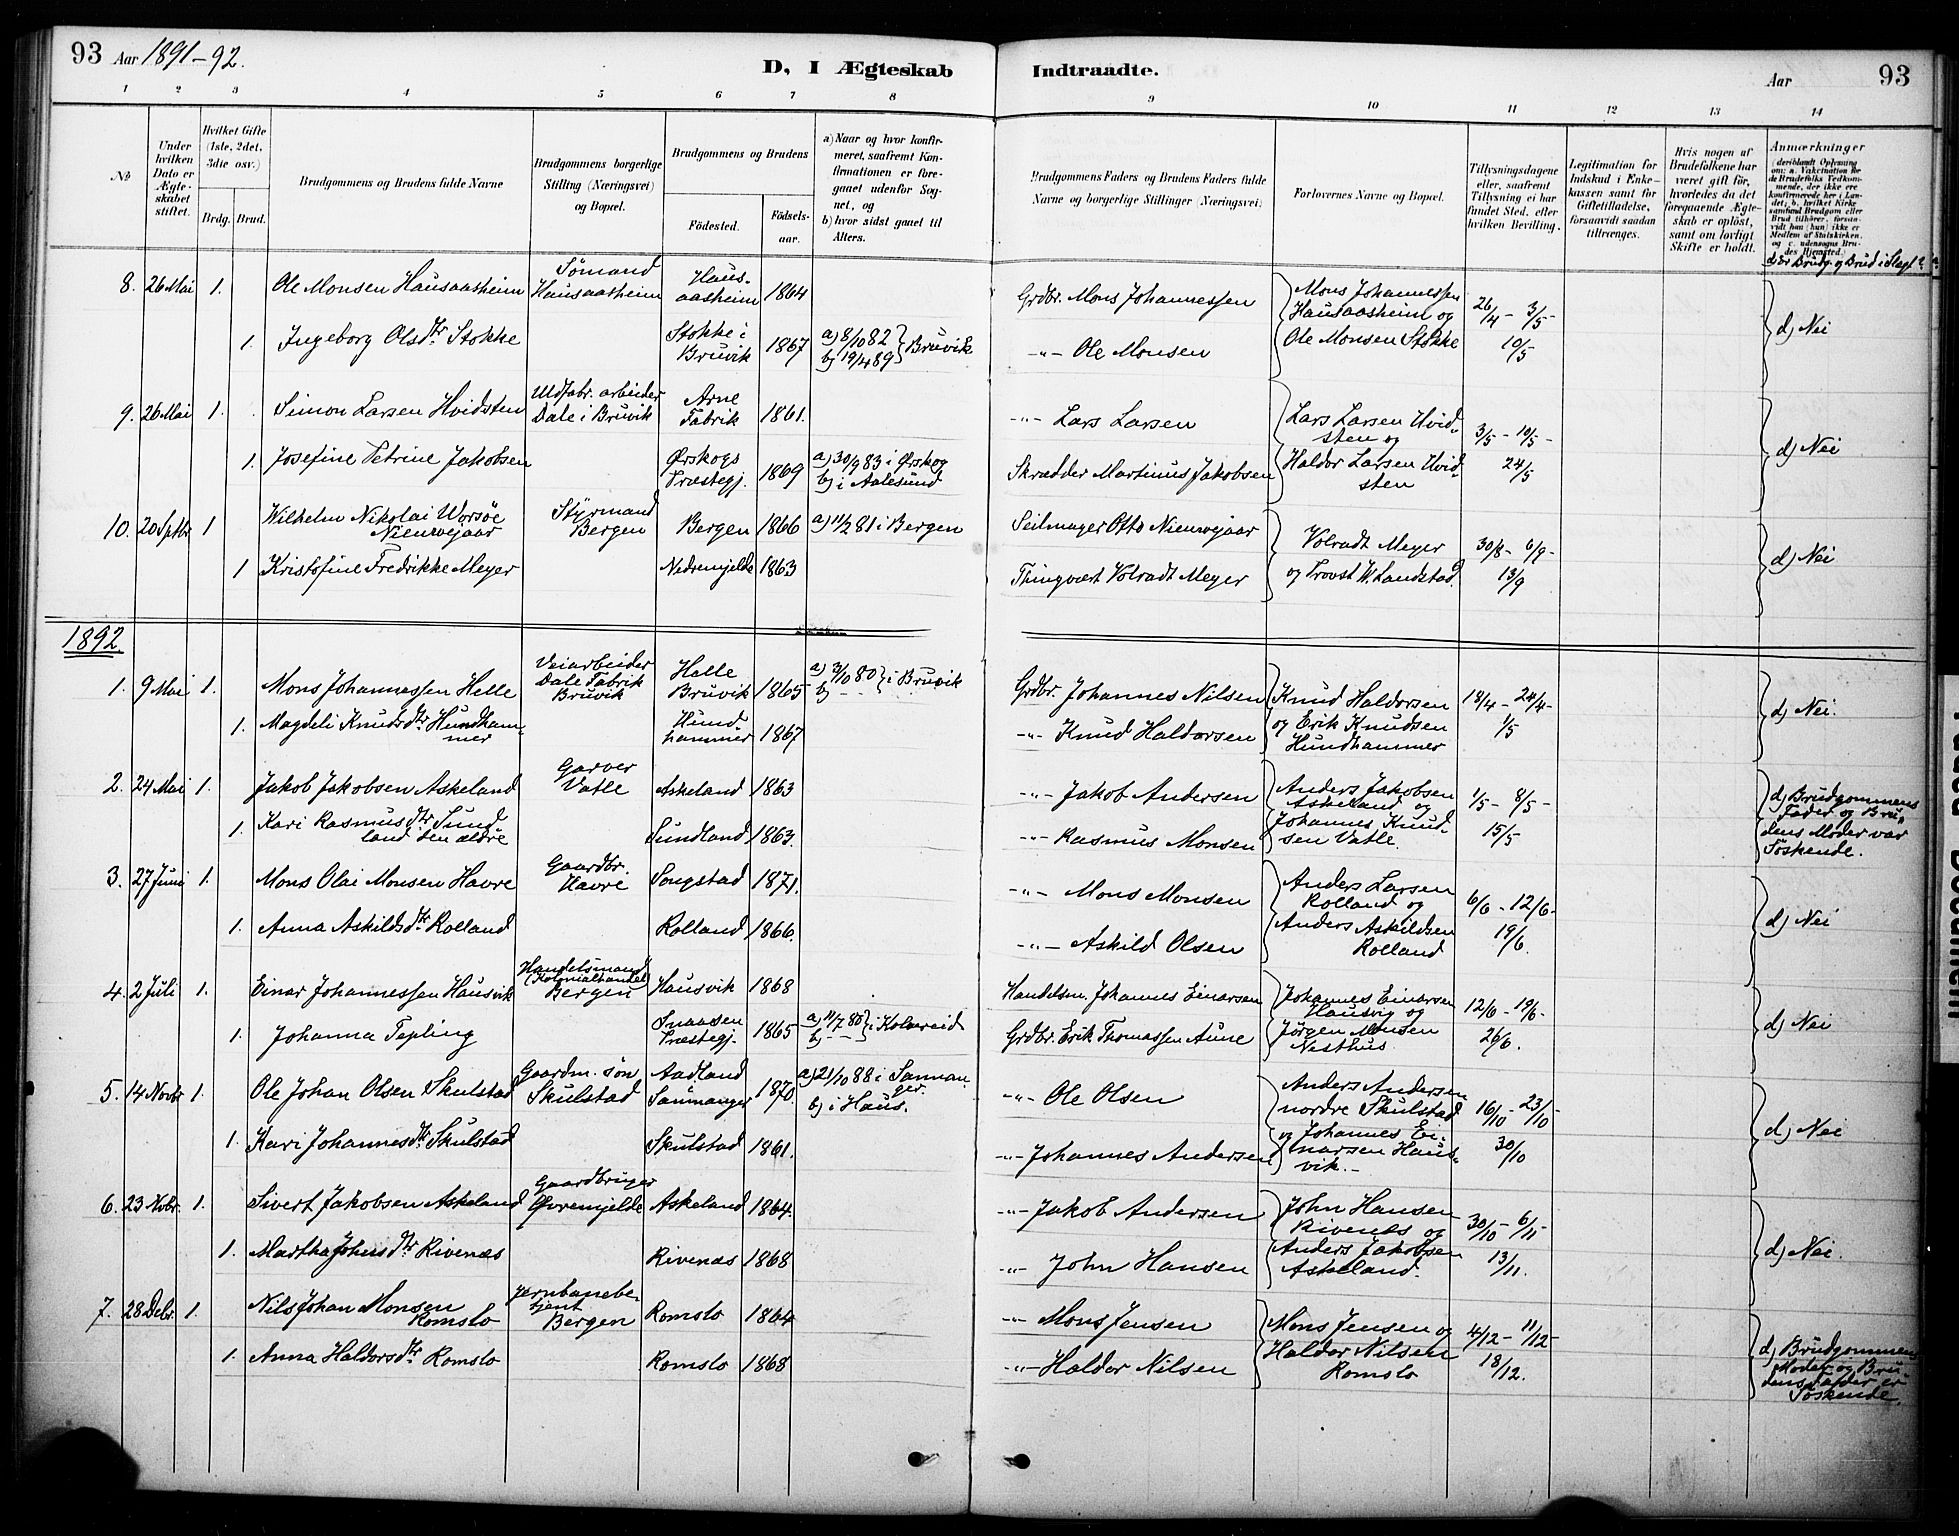 93 Aar 1891-92.
D, I Ægteskab Indtraadte.
Aar 93
1 2 3 4 5 6 7 8 9 10 11 12 13 14
No
Under hvilken Dato er Ægteskabet stiftet.
Hvilket Gifte (1ste, 2det, 3die osv.)
Brdg. Brud.
Brudgommens og Brudens fulde Navne
Brudgommens borgerlige Stilling (Næringsvei) og Bopæl.
Brudgommens og Brudens
Fødested. Fødselsaar.
a) Naar og hvor konfirmeret, saafremt Konfirmationen er foregaaet udenfor Sognet, og
b) hvor sidst gaaet til Alters.
Brudgommens Faders og Brudens Faders fulde Navne og borgerlige Stillinger (Næringsvei)
Forlovernes Navne og Bopæl.
Tillysningsdagene eller, saafremt Tillysning ei har fundet Sted, efter hvilken Bevilling.
Legitimation for Indskud i Enkekassen samt for Giftetilladelse, forsaavidt saadan tiltrænges.
Hvis nogen af Brudefolkene har været gift før, hvorledes da det foregaaende Ægteskab er opløst, samt om lovligt Skifte er holdt.
Anmærkninger
(deriblandt Oplysning om: a. Vakcination for de Brudefolks Vedkommende, der ikke ere konfirmerede her i Landet; b. hvilket Kirkesamfund Brudgom eller Brud tilhører, forsaavidt han (hun) ikke er Medlem af Statskirken, og c. udensogns Brudes Hjemsted.)
d. Er Brudg. og Brud i Slægt?
8. 26 Mai 1. Ole Monsen Hausaasheim Sømand Hausaasheim Hausaasheim 1864 Grdbr. Mons Johannessen Mons Johannessen Hausaasheim og Ole Monsen Stokke 26/4 - 3/5 - 10/5 d) Nei
1. Ingeborg Olsdtr Stokke Stokke i Bruvik 1867 a) 8/10 82 b) 19/4 89 Bruvik -"- Ole Monsen
9. 26 Mai 1. Simon Larsen Hvidsten Uldfabr. arbeider Dale i Bruvik Arne Fabrik 1861. -"- Lars Larsen Lars Larsen Hvidsten og Haldor Larsen Hvidsten 3/5 - 10/5 - 24/5 d) Nei
1. Josefine Petrine Jakobsen Ørskogs Præstegj. 1869 a) 30/9 83 i Ørskog b) i Aalesund Skrædder Martinus Jakobsen
10. 20 Septbr 1 Wilhelm Nikolai Worsøe Nieuwejaar Styrmand Bergen Bergen 1866 a) 11/2 81 i Bergen Seilmager Otto Nieuwejaar Volradt Meyer og Provst W. Landstad. 30/8 - 6/9 - 13/9 d) Nei
1 Kristofine Fredrikke Meyer Nedremjelde 1863 Thingvært Volradt Meyer
1892
1. 9 Mai 1. Mons Johannessen Helle Veiarbeider Dale Fabrik Bruvik Helle Bruvik 1865 a) 3/10 80 b) - - i Bruvik Grdbr. Johannes Nilsen Knud Haldorsen og Erik Knudsen Hundhammer 18/4 - 24/4 - 1/5 d) Nei.
1. Magdeli Knudsdtr Hundhammer Hundhammer 1867 -"- Knud Haldorsen
2. 24 Mai 1. Jakob Jakobsen Askeland Garver Vatle Askeland 1863 -"- Jakob Andersen Anders Jakobsen Askeland og Johannes Knudsen Vatle. 1/5 - 8/5 - 15/5 d) Brudgommens Fader og Brudens Moder var Søskende.
1. Kari Rasmusdtr Sundland den ældre Sundland 1863. -"- Rasmus Monsen
3. 27 Juni 1. Mons Olai Monsen Havre Gaardbr. Havre Songstad 1871. -"- Mons Monsen Anders Larsen Rolland og Anders Askildsen Rolland 6/6 - 12/6 - 19/6. d) Nei
1. Anna Askildsdtr Rolland Rolland 1866. -"- Askild Olsen
4. 2 Juli 1. Einar Johannessen Hausvik Handelsmand (Kolonialhandel) Bergen Hausvik 1868 Handelsm. Johannes Einarsen Johannes Einarsen Hausvig og Jørgen Monsen Nesthus 12/6 - 19/6 - 26/6. d) Nei
1. Johanna Tepling Snaasen Præstegj. 1865 a) 11/7 80 b) - - i Kolvereid Grdbr. Erik Thomassen Aune
5. 14 Novbr 1. Ole Johan Olsen Skulstad Gaardm. søn Skulstad Aadland Sammanger 1870. a) 21/10 88 i Sammanger. b) i Haus. -"- Ole Olsen Anders Andersen nordre Skulstad og Johannes Einarsen Hausvik. - 16/10 - 23/10 - 30/10 d) Nei
1. Kari Johannesdtr Skulstad Skulstad 1861. -"- Johannes Andersen
6. 23 Novbr. 1. Sivert Jakobsen Askeland Gaardbruger Øvremjelde Askeland 1864. -"- Jakob Andersen John Hansen Rivenæs og Anders Jakobsen Askeland. 30/10 - 6/11 - 13/11. d) Nei.
1. Martha Johnsdtr Rivenæs Rivenæs 1868 -"- John Hansen
7. 28 Debr. 1. Nils Johan Monsen Romslo Jernbanebetjent Bergen Romslo 1864 -"- Mons Jensen Mons Jensen og Haldor Nilsen Romslo 4/12 - 11/12 - 18/12. d) Brudgommens Moder og Brudens Fader er Søskende.
1. Anna Haldorsdtr Romslo Romslo 1868 -"- Haldor Nilsen